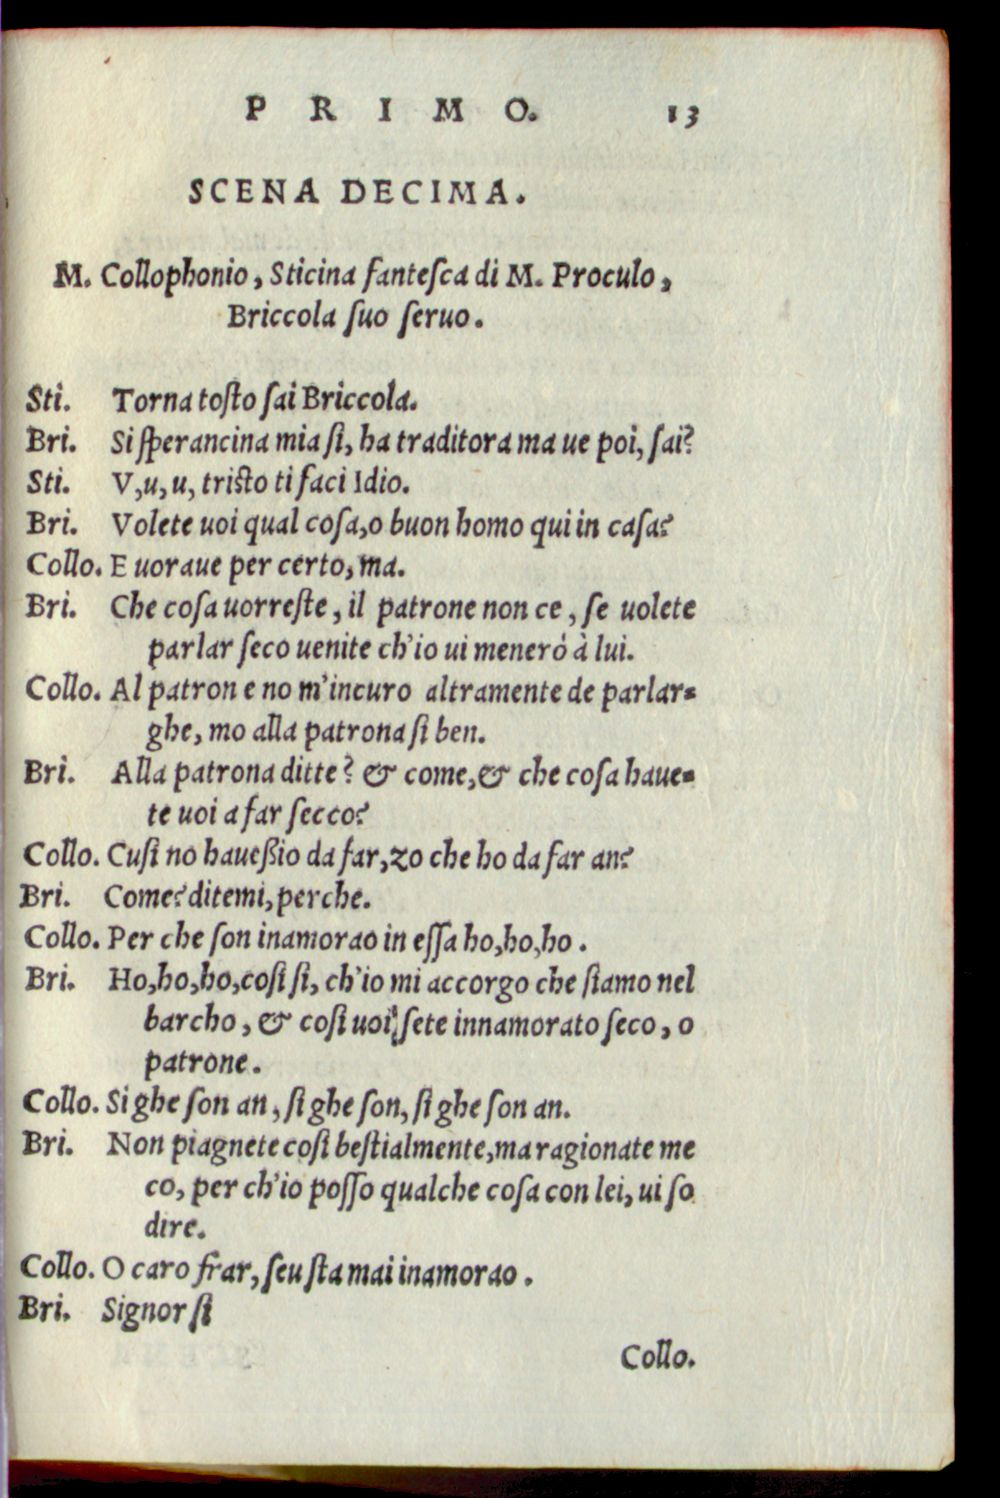 PRIMO. 13
SCENA DECIMA.
M. Collophonio, Sticina fanteſca di M. Proculo,
Briccola ſuo ſeruo.
Sti. Torna toſto ſai Briccola.
Bri. Si ſperancina mia ſi, ha traditora ma ue poi, ſai?
Sti. V,u,u, triſto ti faci Idio.
Bri. Volete uoi qual coſa,o buon homo qui in caſa?
Collo. E uoraue per certo, ma.
Bri. Che coſa uorreſte, il patrone non ce, ſe uolete
parlar ſeco uenite ch'io ui menerò à lui.
Collo. Al patron e no m'incuro altramente de parlar-
ghe, mo alla patrona ſi ben.
Bri. Alla patrona ditte? & come,& che coſa haue-
te uoi a far ſecco?
Collo. Cuſi no haueßio da far,zo che ho da far an?
Bri. Come? ditemi, perche.
Collo. Per che ſon inamorao in eſſa ho,ho,ho.
Bri. Ho,ho,ho,coſi ſi, ch'io mi accorgo che ſiamo nel
barcho, & coſi uoi ſete innamorato ſeco, o
patrone.
Collo. Si ghe ſon an, ſi ghe ſon, ſi ghe ſon an.
Bri. Non piagnete coſi beſtialmente,ma ragionate me
co, per ch'io poſſo qualche coſa con lei, ui ſo
dire.
Collo. O caro frar, ſeu ſta mai inamorao.
Bri. Signor ſi
Collo.